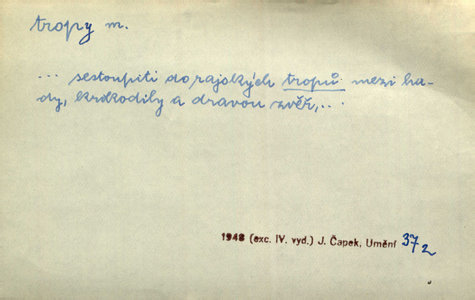 tropy m.
... sestoupiti do rajských tropů mezi ha-
dy, krokodily a dravou zvěř,...
1948 (exc. IV. vyd.) J. Čapek, Umění 37 2